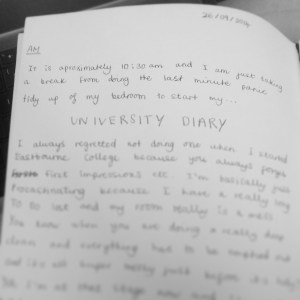 20/09/2014
AM
It is aproximately 10:30am and I am just taking
a break from doing the last minute panic
tidy up of my bedroom to start my...
UNIVERSITY DIARY
I always regretted not doing one when I started
Eastbourne College because you always people
first impressions etc I'm basically just
Procrastinating because I have a really long
To Do list and my room really is a mess
You know when you are doing a really deep
clean and everything has to be emptied out
and it's